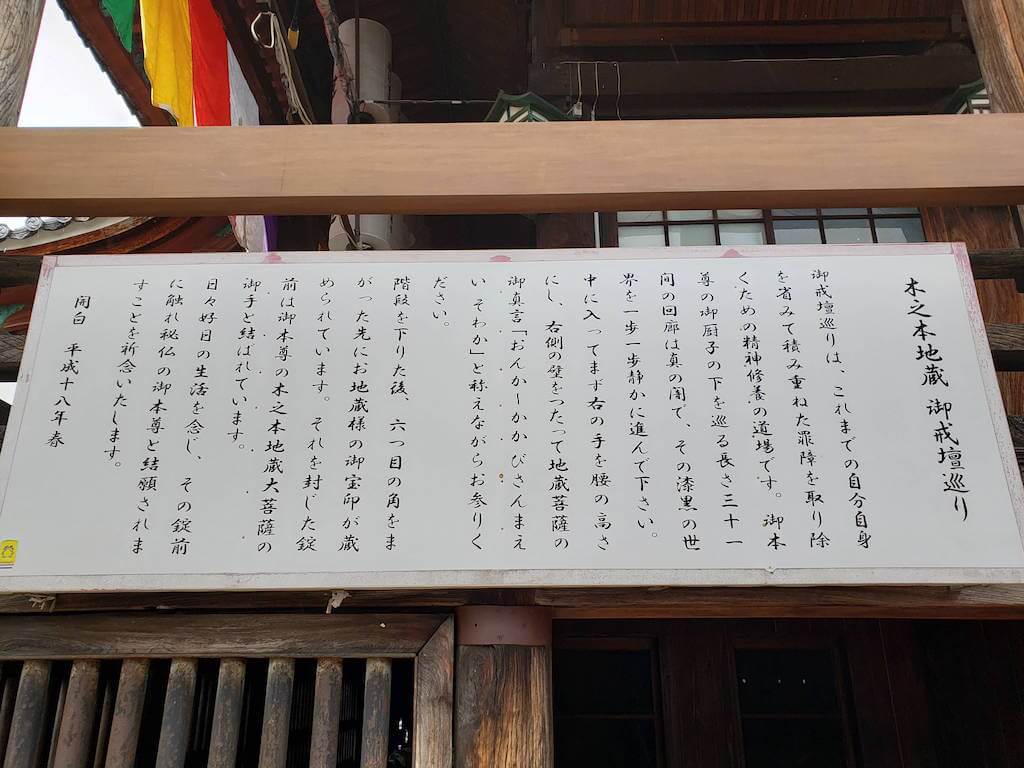 木之本地蔵 御戒壇巡り
御戒壇巡りは、これまでの自分自身
を省みて積み重ねた罪障を取り除
くための精神修養の道場です。御本
尊の御厨子の下を巡る長さ三十一
間の回廊は真の闇で、その漆黒の世
界を一歩一歩静かに進んで下さい。
中に入ってまず右の手を腰の高さ
にし、右側の壁をつたって地蔵菩薩の
御真言「おんかーかかびさんまえ
いそわか」と称えながらお参りく
ださい。
階段を下りた後、六つ目の角をま
がった先にお地蔵様の御宝印が蔵
められています。それを封じた錠
前は御本尊の木之本地蔵大菩薩の
御手と結ばれています。
日々好日の生活を念じ、その錠前
に触れ秘仏の御本尊と結願されま
すことを祈念いたします。
開白 平成十八年春